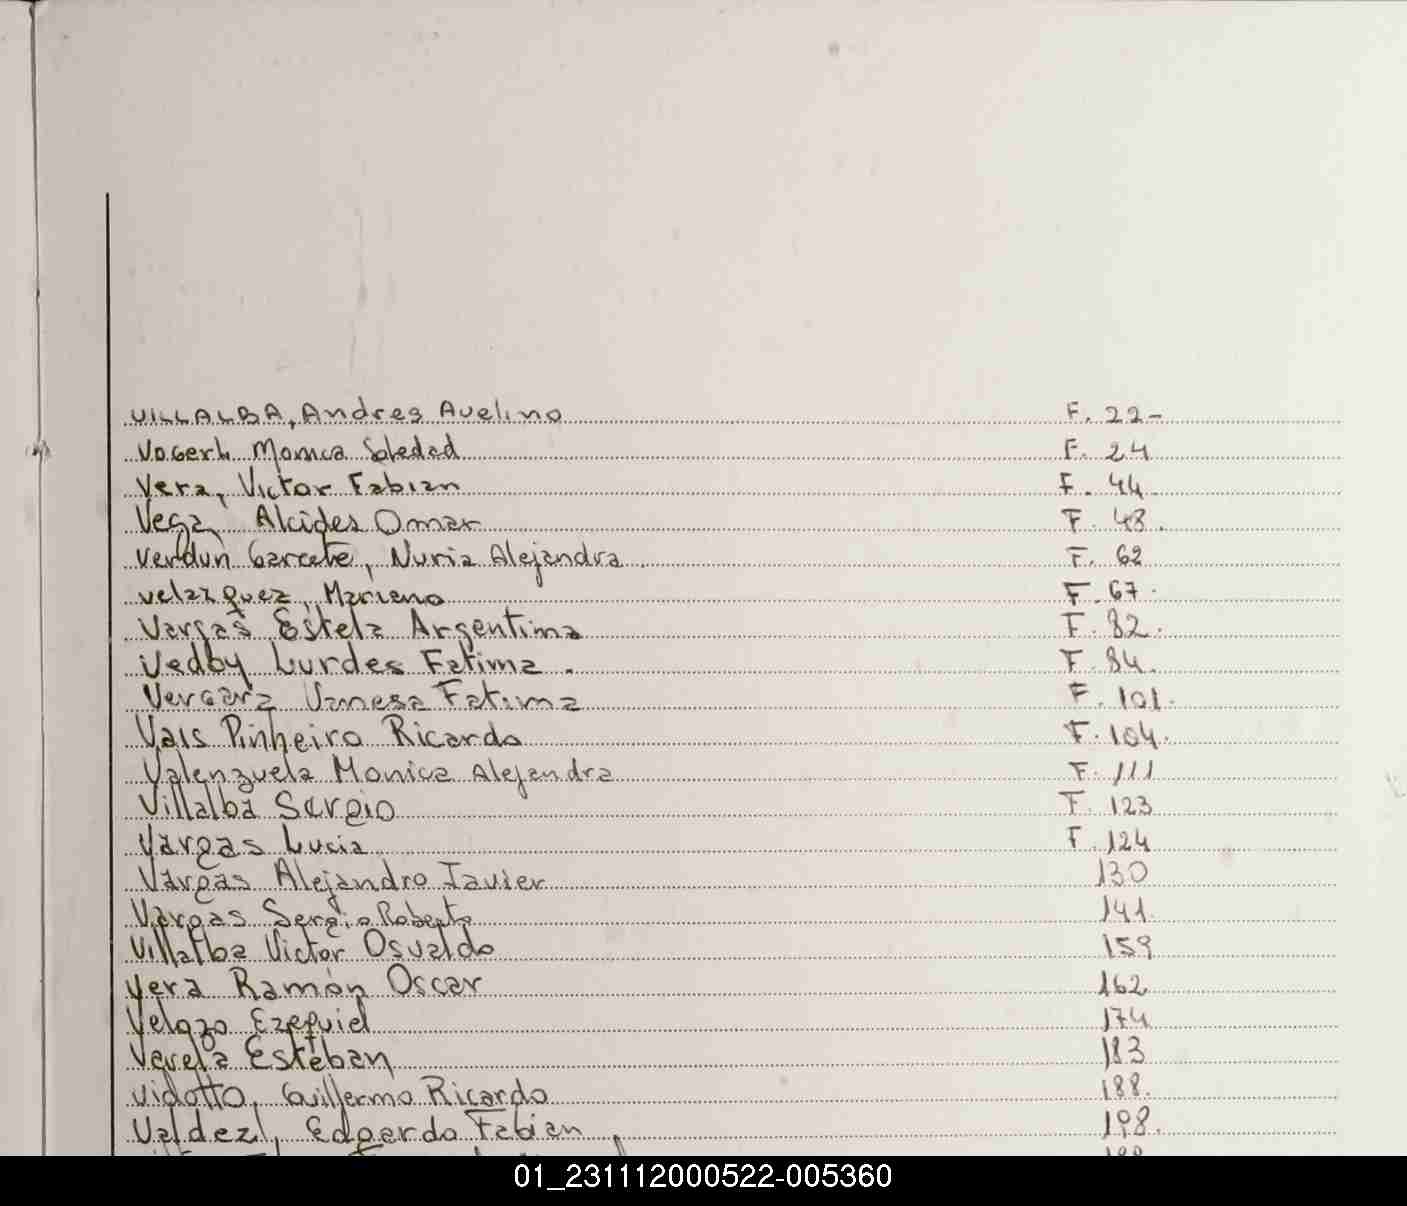 VILLALBA, Andres Avelino F. 22-
Vogerl Monica Soledad F. 24
Vera, Victor Fabian F. 44
Vega Alcides Omar F. 48.
Verdún Garcete, Nuria Alejandra F. 62
Velazquez, Mariano F. 67.
Vargas Estela Argentina F. 82.
Vedby Lurdes Fatima. F. 84.
Vergara Vanesa Fatima F. 101.
Vais Pinheiro Ricardo F. 104.
Valenzuela Monica Alejandra F. 111
Villalba Sergio F. 123
Vargas Lucia F. 124
Vargas Alejandro Javier 130
Vargas Sergio Roberto 141
Villalba Victor Osvaldo 159
Vera Ramón Oscar 162
Velozo Ezequiel 174
Varela Esteban 183
Vidotto, Guillermo Ricardo 188.
Valdez, Edgardo Fabian 198.
01_231112000522-005360